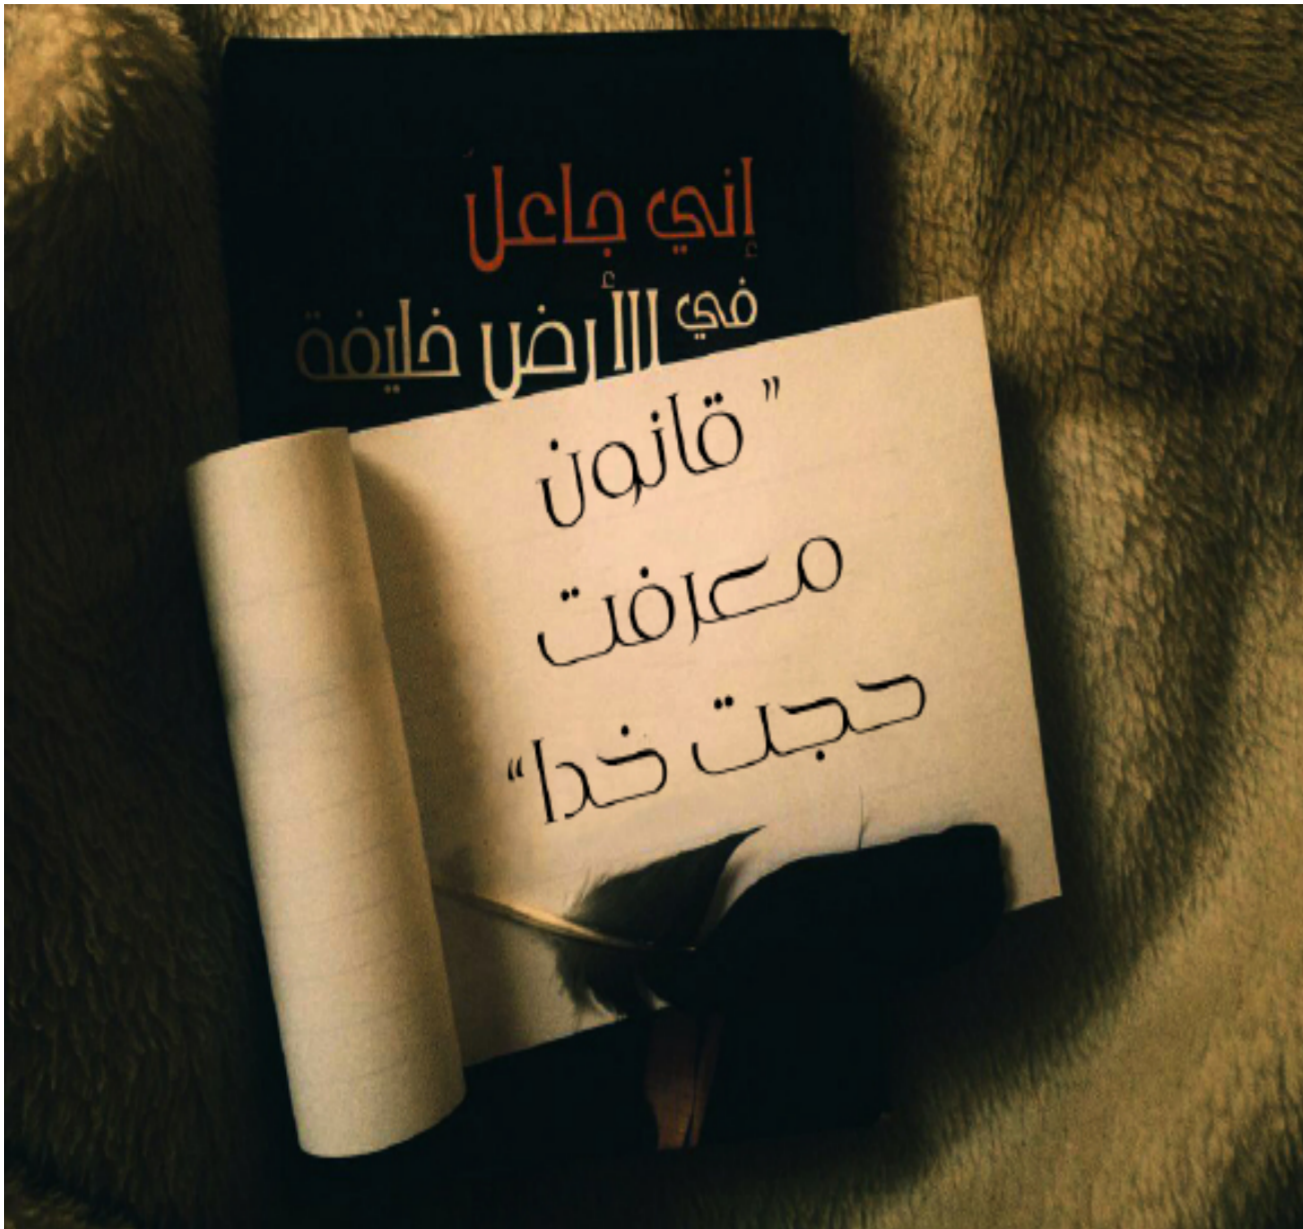 إني جاعل
في الأرض خليفة
” قانون
معرفت
حجت خدا “